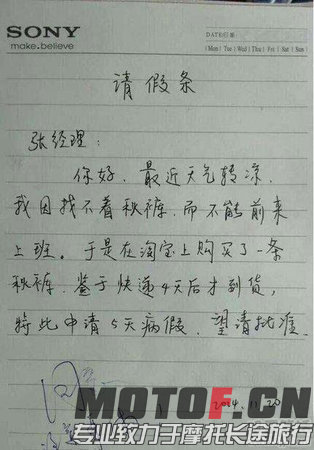 SONY
make.believe
DATE/日期:
(Mon|Tue|Wed|Thu|Fri|Sat|Sun)
请假条
张经理:
你好,最近天气转凉,
我因找不着秋裤,而不能前来
上班。于是在淘宝上购买了一条
秋裤,鉴于快递4天后才到货,
特此申请5天病假,望请批准
2014.11.20
MOTOF.CN
专业致力于摩托长途旅行